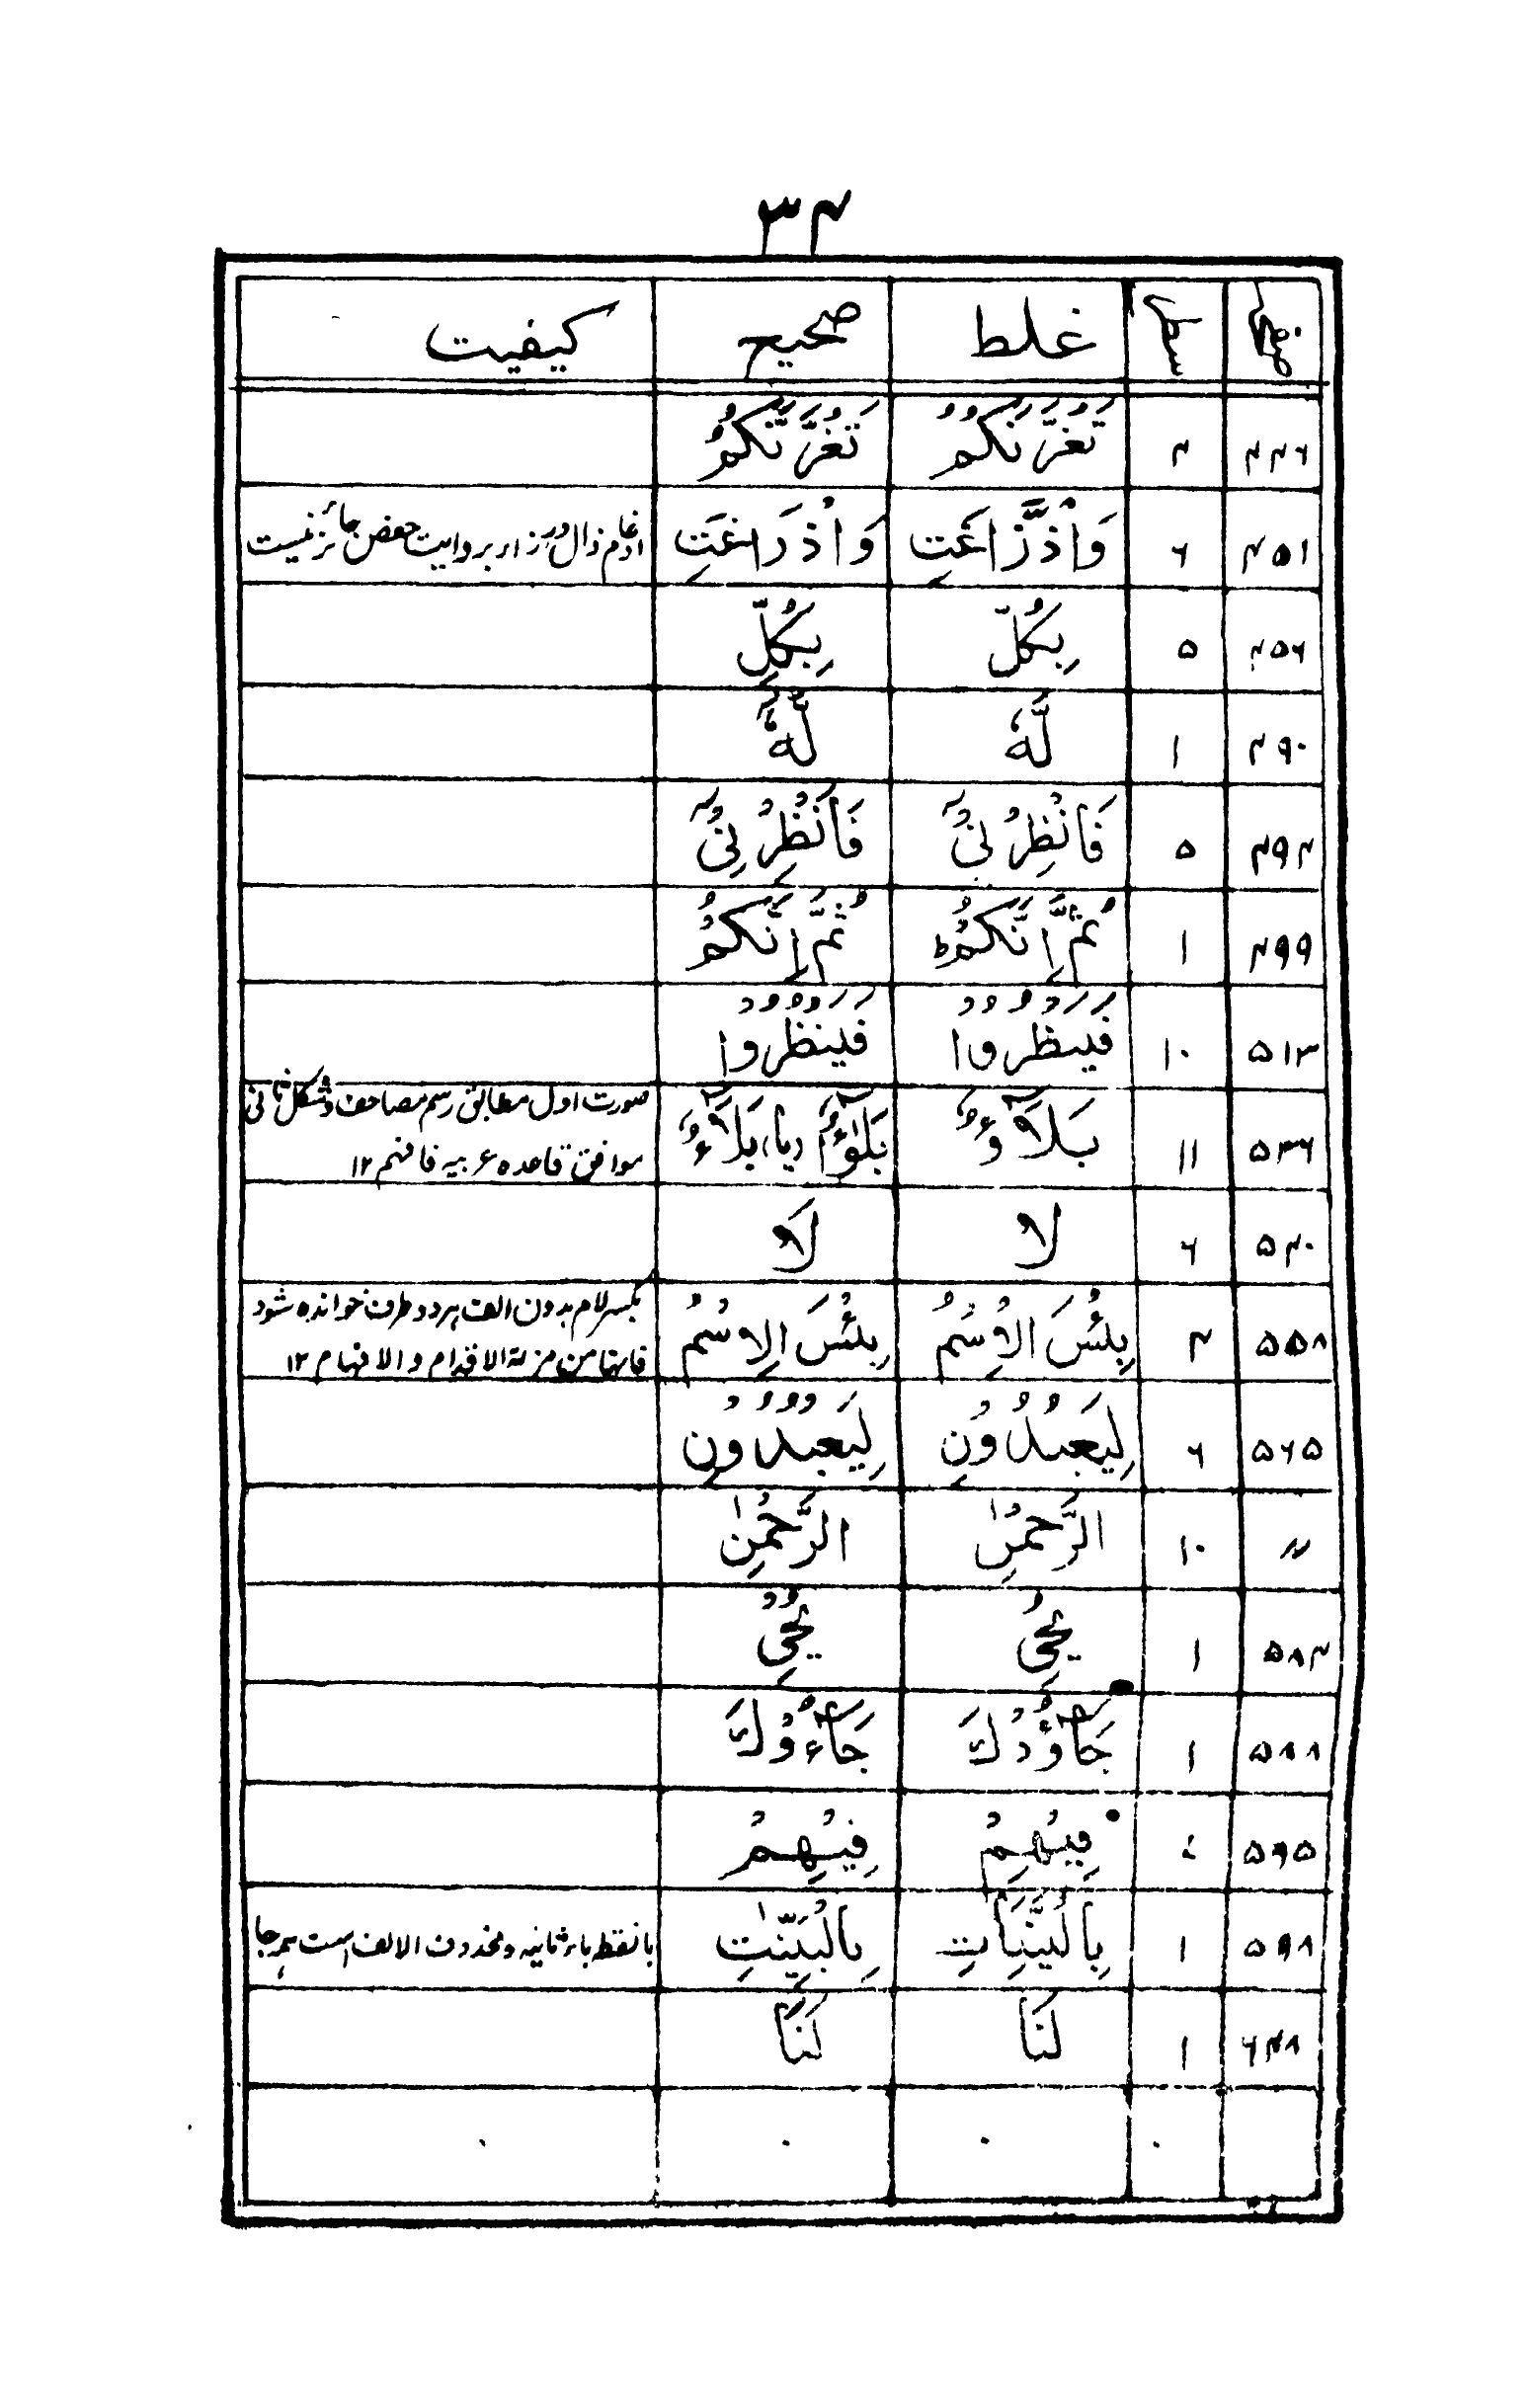 ۳۴
صفحه سطر غلط صحیح کیفیت
۴۴۶ ۴ تَغُرَّنَكُمُ تَغُرَّنَّكُمُ
۴۵۱ ۶ وَاْذزَّاغَتِ وَاْذزَاغَتِ ادغام ذال در زا بروایت حفص جائز نیست
۴۵۶ ۵ بِكُلّ بِكُلِّ
۴۹۰ ۱ لَّهٗ لَّهٗۤ
۴۹۴ ۵ فَانْظِرُنِیْۤ فَاَنْظِرْنِیْۤ
۴۹۹ ۱ ثُمَّ اِنَّكُمْ ؕ ثُمَّ اِنَّكُمْ
۵۱۳ ۱۰ فَیَنْظُرُوْا فَیَنْظُرُوْا
۵۳۶ ۱۱ بَلَآوءٌ بَلٰٓؤٌا (یا) بَلَآءٌ صورت اول مطابق رسم مصاحف و شکل ثانی
موافق قاعده عربیه فافهم ۱۲
۵۴۰ ۶ لا لَا
۵۵۸ ۴ بِئْسَ الْاِسْمُ بِئْسَ الِاسْمُ بکسر لام بدون الف هر دو طرف خوانده شود
فانها من مزلة الاقدام و الافهام ۱۲
۵۶۵ ۶ لِیَعْبُدُوْنِ لِیَعْبُدُوْنِ
〃 ۱۰ الرَّحْمٰنِ الرَّحْمٰنِ
۵۸۴ ۱ یُحْیِ یُحْیِ
۵۸۸ ۱ جَآؤُدُكَ جَآءُوْكَ
۵۹۵ فِیْهِمْ فِیْهِمْ
۵۹۸ ۱ بِالْبَیَّنِاتِ بِالْبَیِّنٰتِ با نقطه باء ثانیه و محذوف الالف است هر جا
۶۴۸ ۱ لَنَا لَنَاۤ